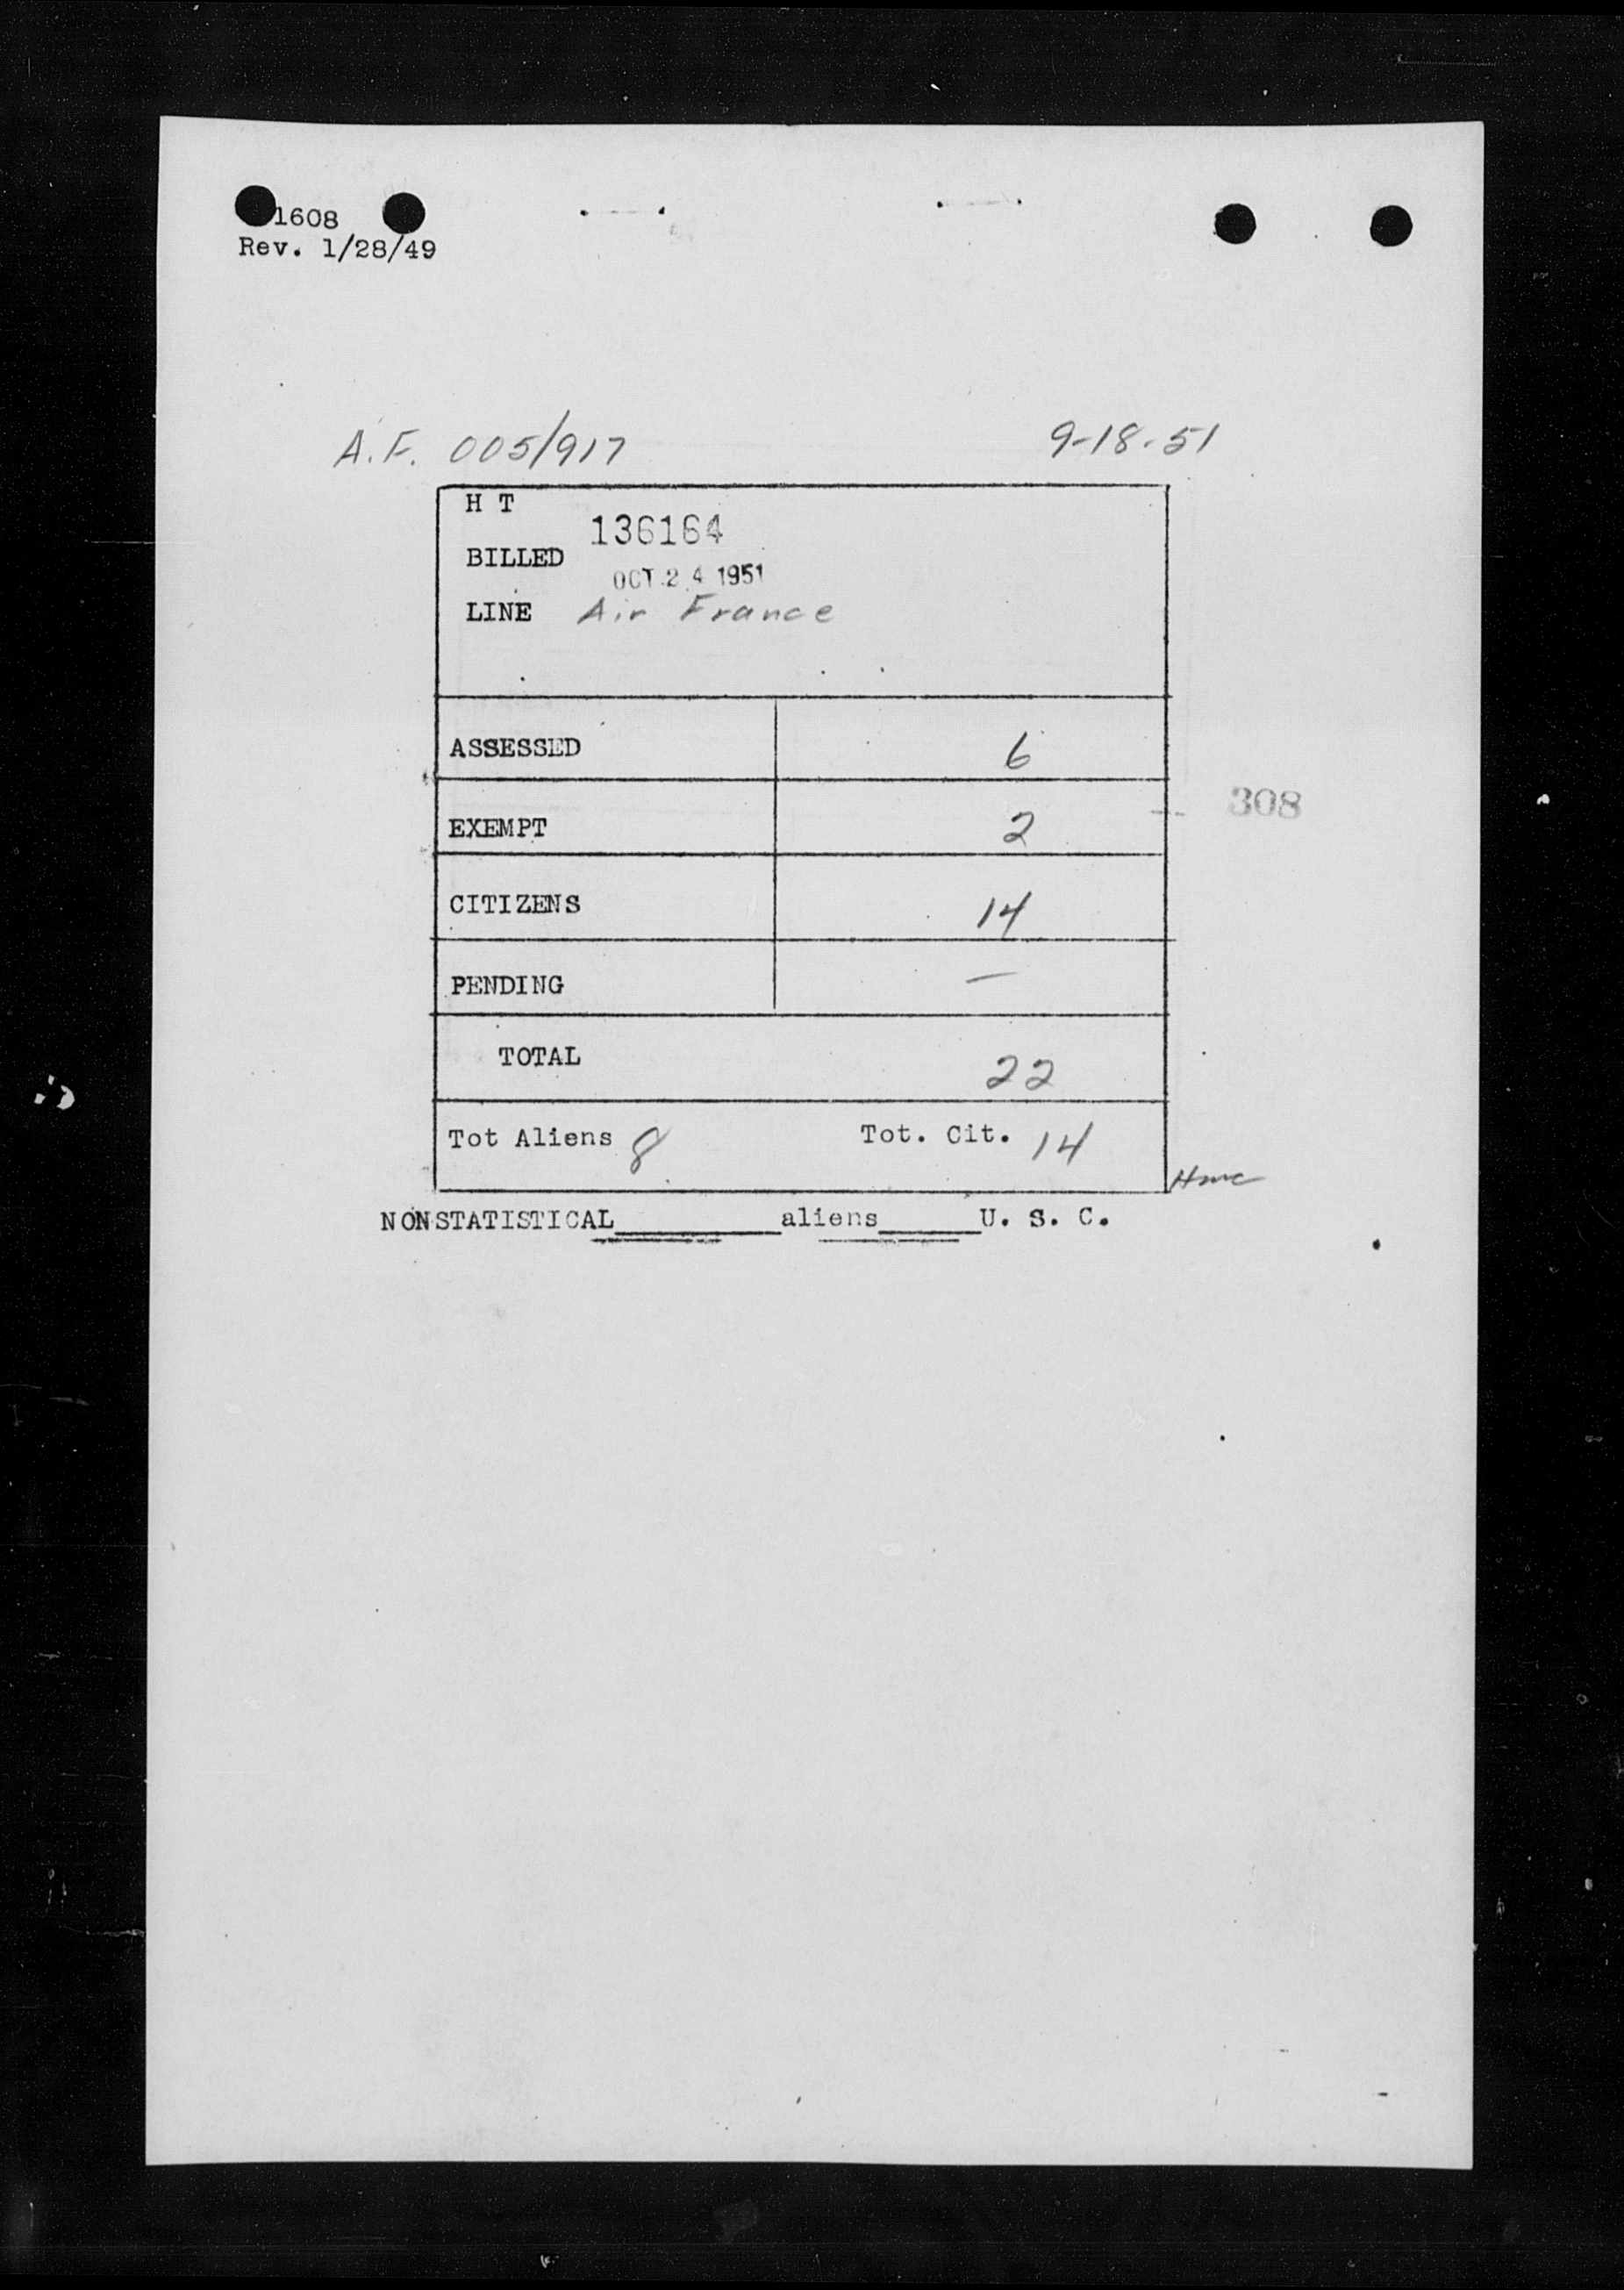 1608
Rev. 1/28/49
A.F. 005/917 9-18-51
H T
136164
BILLED
OCT 24 1951
LINE Air France
ASSESSED 6
308
EXEMPT 2
CITIZENS 14
PENDING —
TOTAL 22
Tot Aliens 8 Tot. Cit. 14
NONSTATISTICAL________aliens_____U. S. C.